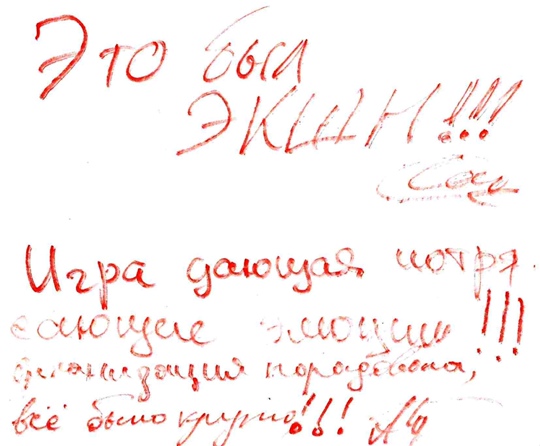 Это был
ЭКШН!!!
Игра дающая потря
сающие эмоции!!!
организация порадовала,
всё было круто!!!